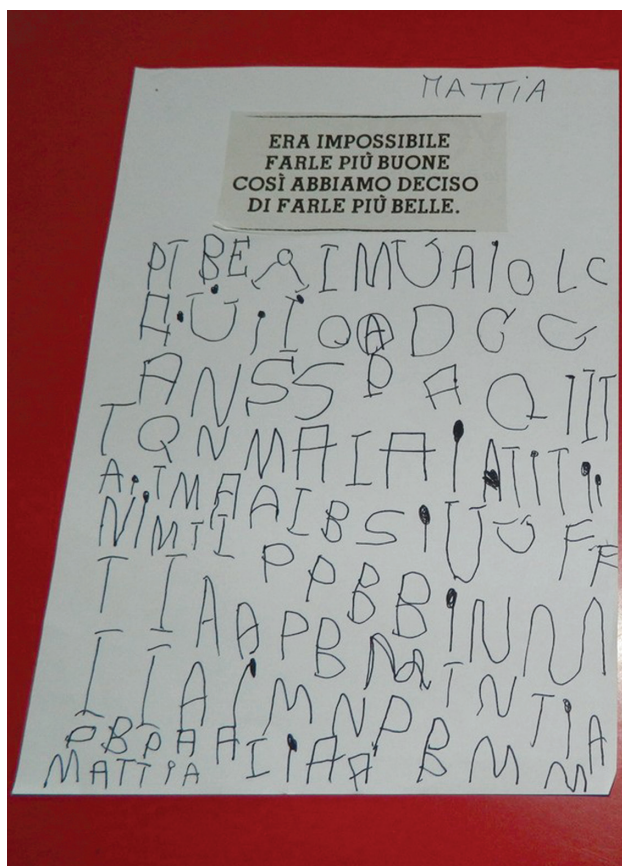 MATTiA
ERA IMPOSSIBILE
FARLE PIÙ BUONE
COSÌ ABBIAMO DECISO
DI FARLE PIÙ BELLE.
PT BE A I M U A i O L C
A i U i I Q A D C G
A N S S P A Q I I T
T Q N M A I A i A T i T i i
A i T M A A I B S i U U F F
N i M T I P P B B i N M
T I A A P B M T N T i A
I I A i M N P
P B P A A I i A A B M M
MATTiA